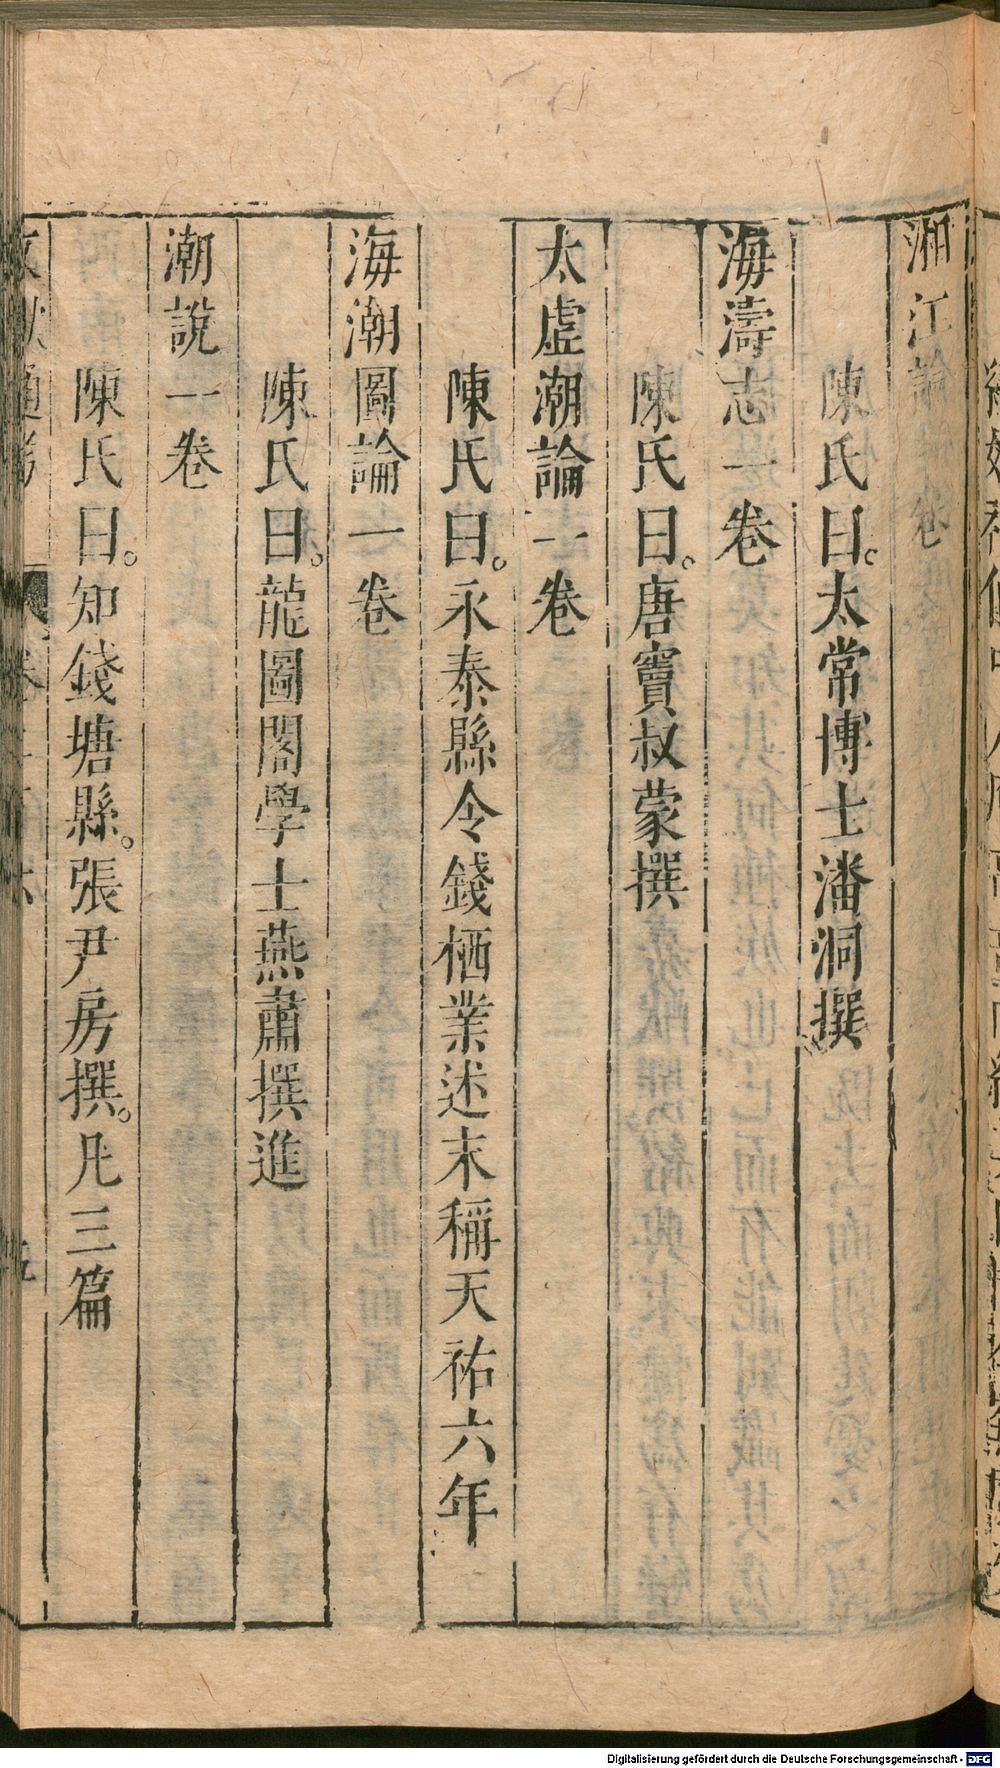 湘江論一卷
陳氏曰。太常博士潘洞撰
海濤志一卷
陳氏曰。唐竇叔蒙撰
太虛潮論一卷
陳氏曰。永泰縣令錢栖業述末稱天祐六年
海潮圖論一卷
陳氏曰。龍圖閣學士燕肅撰進
潮說一卷
陳氏曰。知錢塘縣。張尹房撰。凡三篇
Digitalisierung gefördert durch die Deutsche Forschungsgemeinschaft - DFG